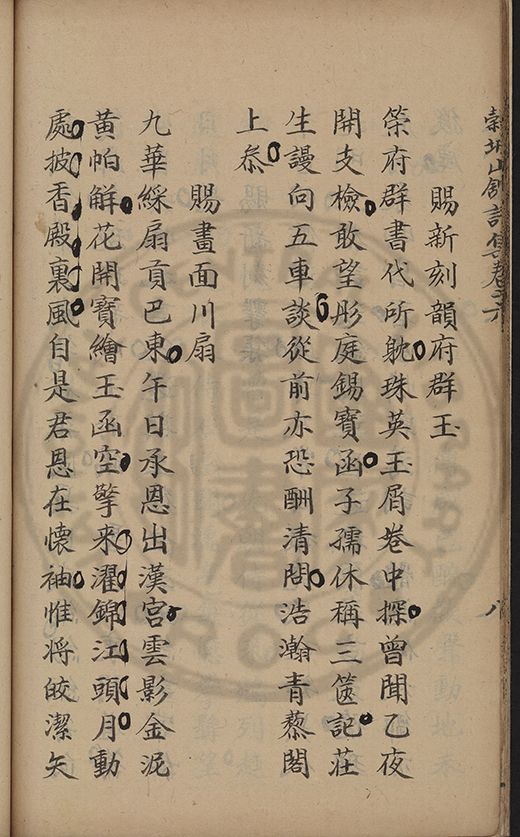 穀城山館詩集卷之六
八
賜新刻韻府群玉
䇿府群書代所躭珠英玉屑卷中探曾聞乙夜
開支檢敢望彤庭錫寶函子孺休稱三篋記莊
生謾向五車談從前亦恐酬清問浩瀚青藜閣
上叅
賜畫面川扇
九華綵扇貢巴東午日承恩出漢宮雲影金泥
黃帕解花開寶繪玉函空擎來濯錦江頭月動
處披香殿裏風自是君恩在懷袖惟將皎潔矢